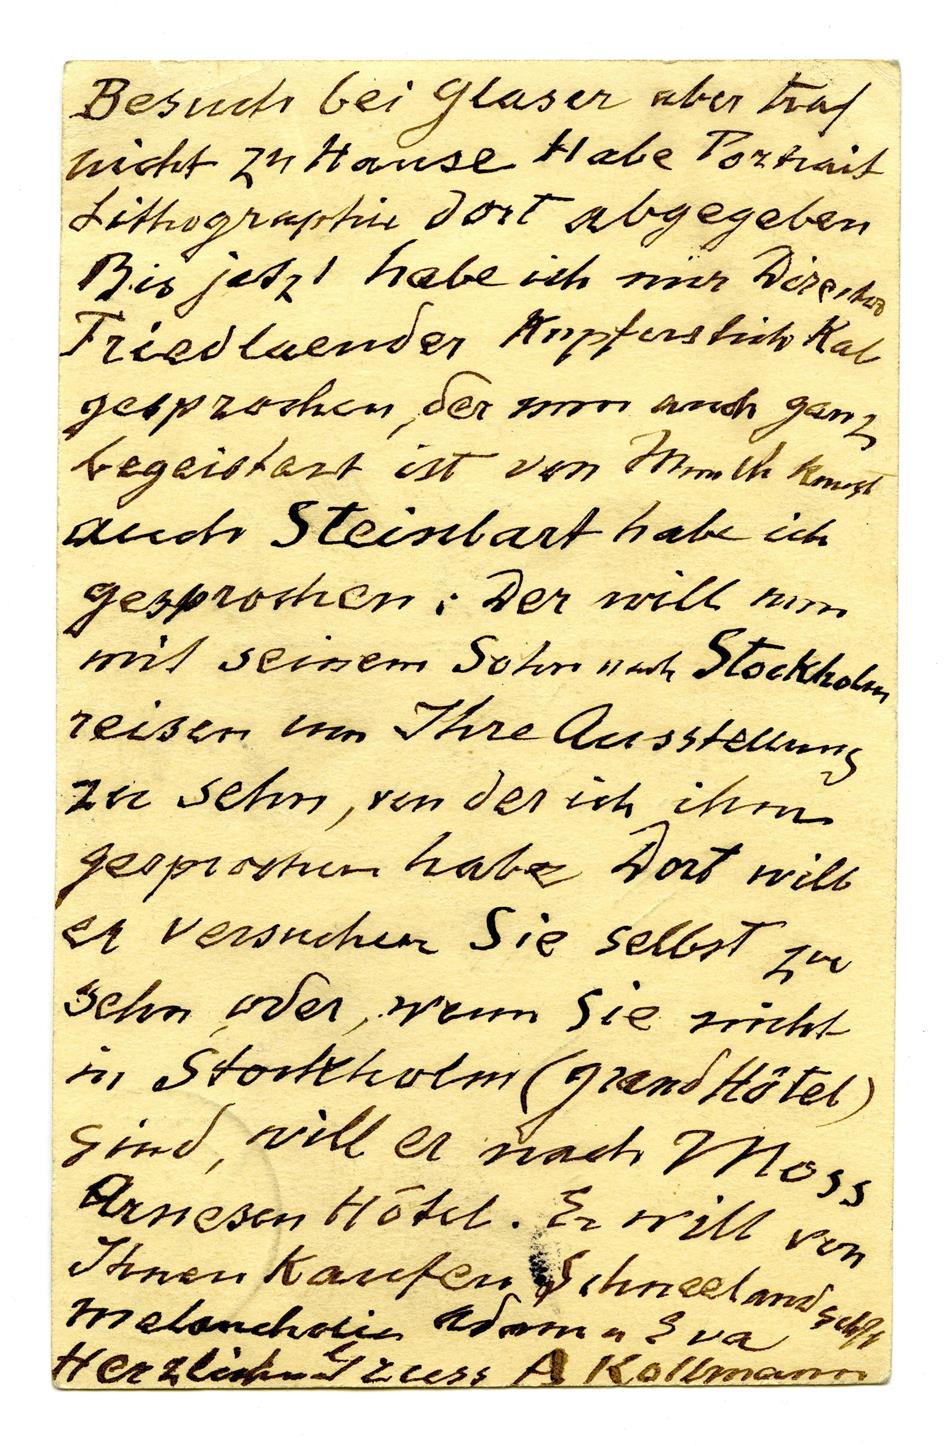 Besuch bei Glaser aber traf
nicht zu Hause Habe Portrait
Lithographie dort abgegeben
Bis jetzt habe ich nur Director
Friedlaender Kupferstich Kab
gesprochen, der nun auch ganz
begeistert ist von Munch kunst
auch Steinbart habe ich
gesprochen: Der will nun
mit seinem Sohn nach Stockholm
reisen um Ihre Ausstellung
zu sehn, von der ich ihm
gesprochen habe Dort will
er versuchen Sie selbst zu
sehn, oder, wenn Sie nicht
in Stockholm (Grand Hôtel)
sind, will er nach Moss
Arnesen Hôtel. Er will von
Ihnen kaufen Schneelandschaft
Melancholie Adam u Eva
Herzlichen Gruss A Kollmann